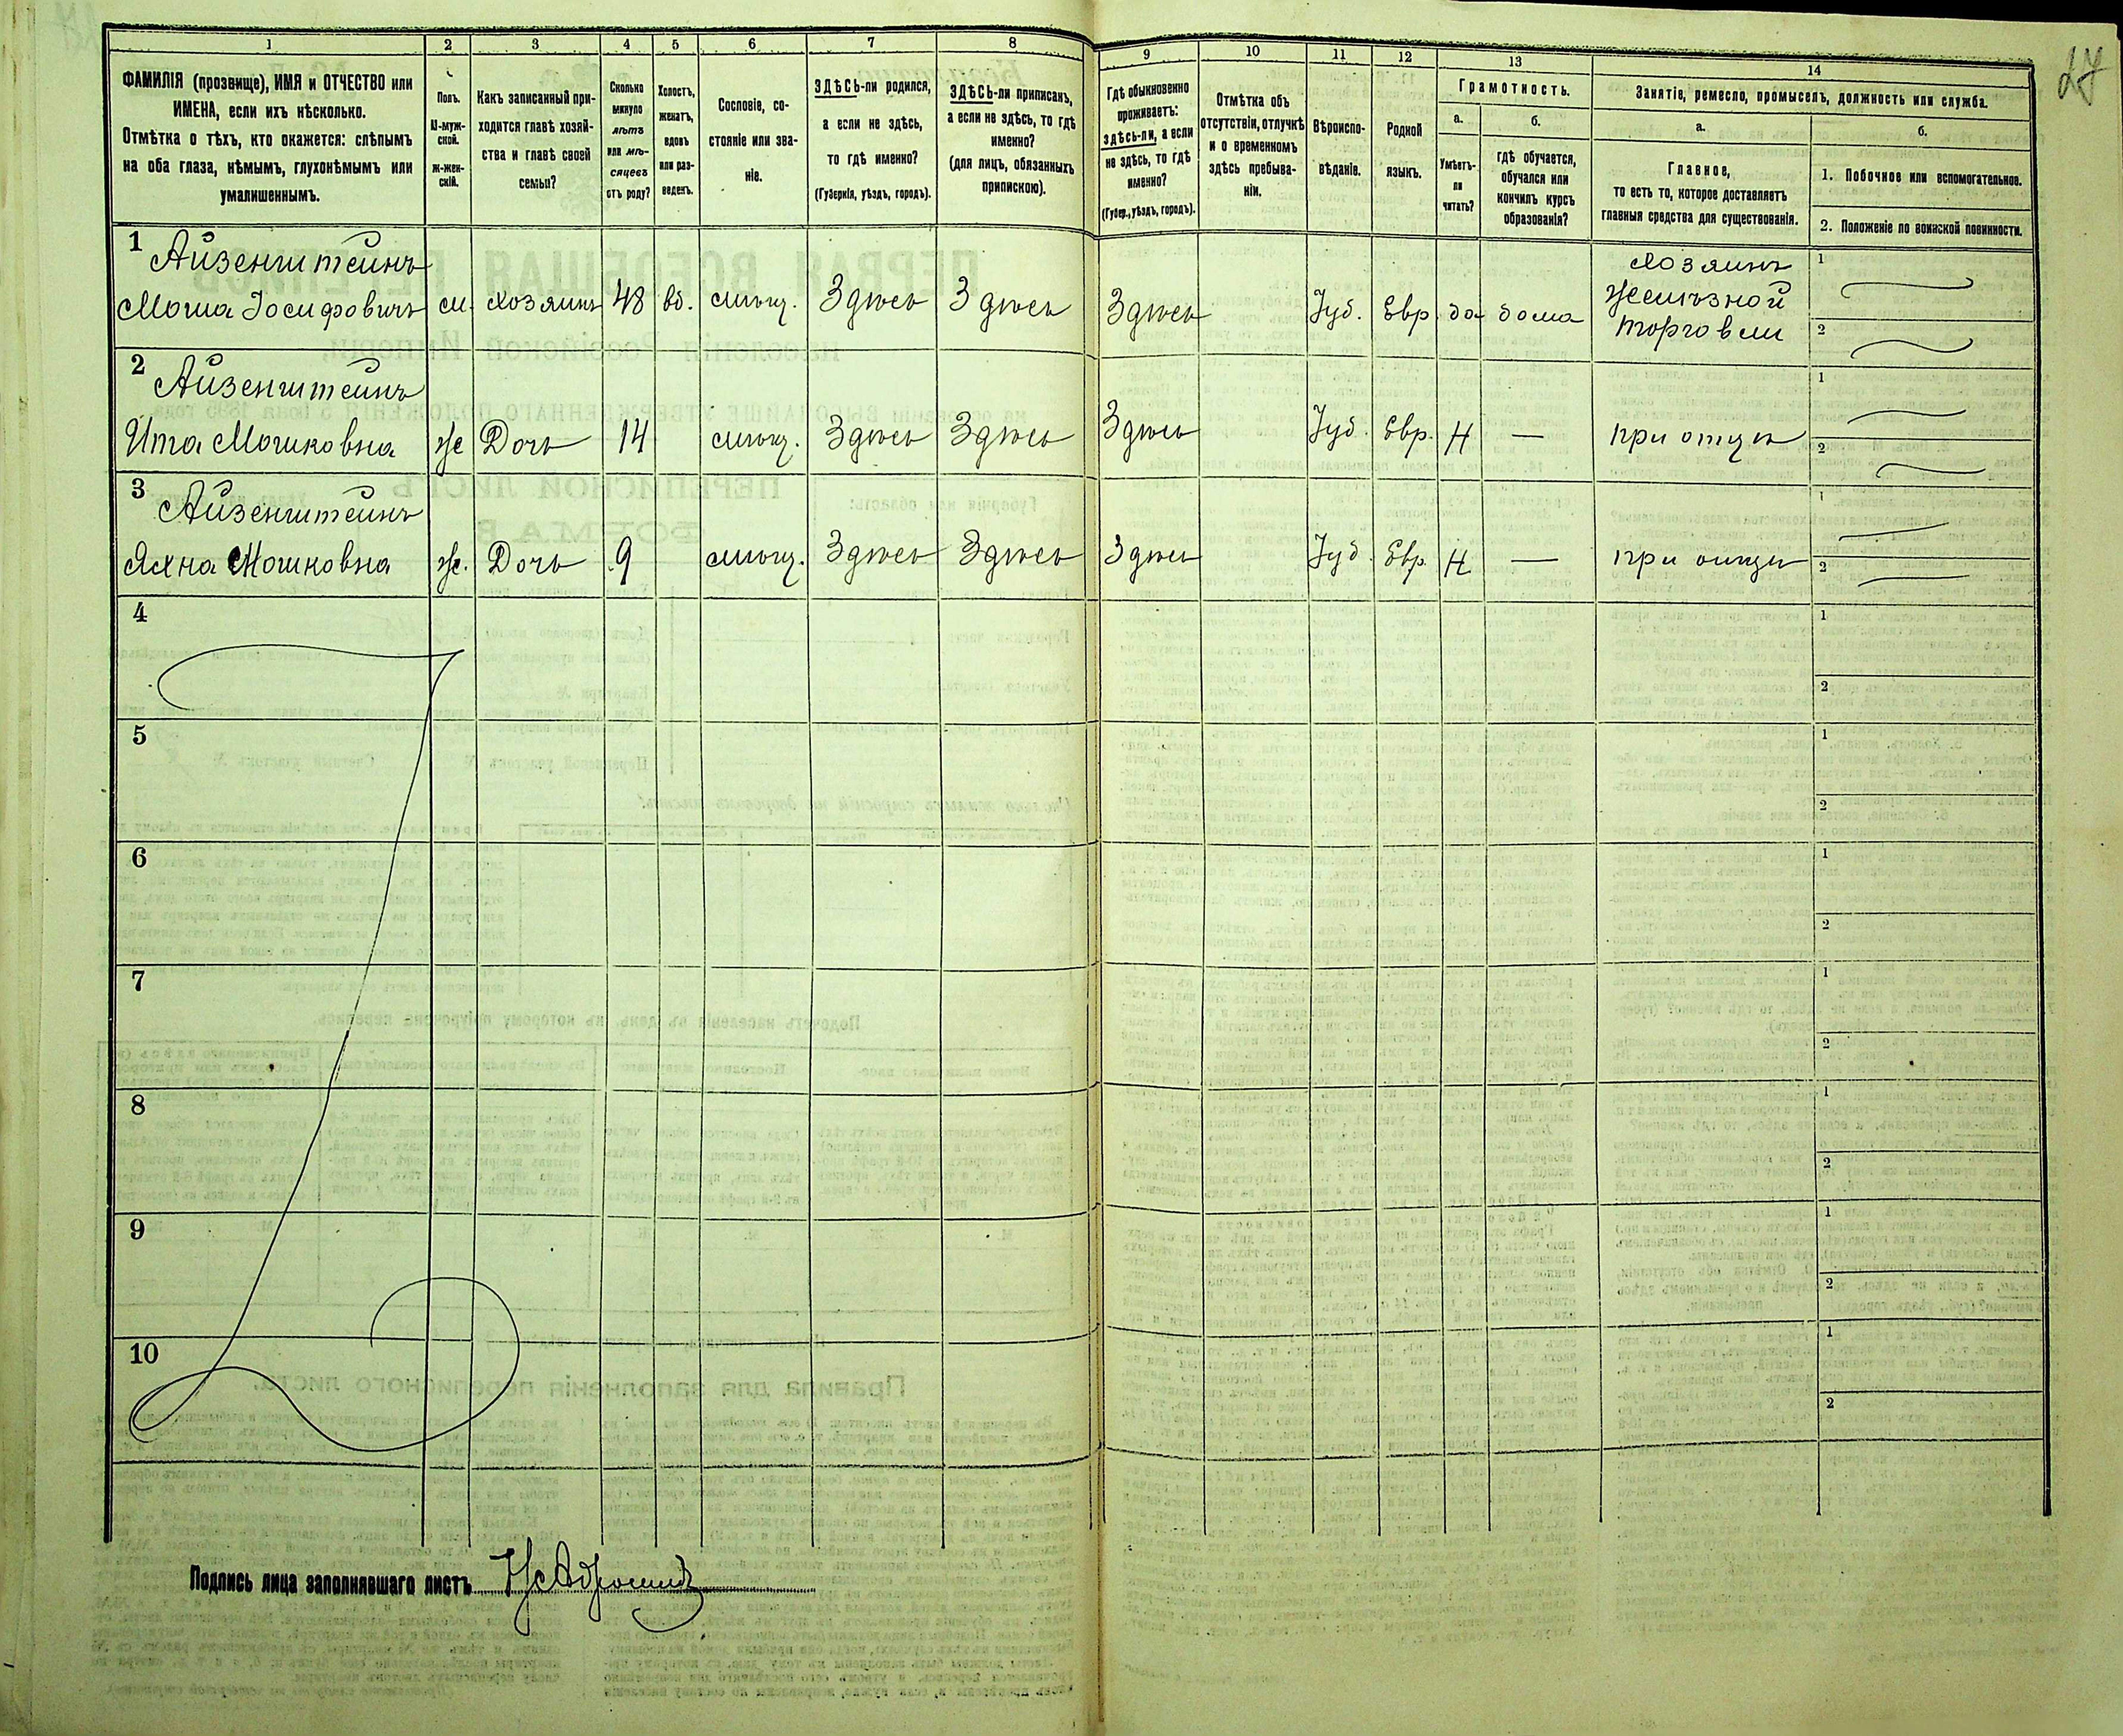 27
1 2 3 4 5 6 7 8 9 10 11 12 13 14
ФАМИЛІЯ (прозвище), ИМЯ и ОТЧЕСТВО или
ИМЕНА, если ихъ нѣсколько.
Отмѣтка о тѣхъ, кто окажется: слѣпымъ
на оба глаза, нѣмымъ, глухонѣмымъ или
умалишеннымъ.
Полъ.
М-муж-
ской.
ж-жен-
скій.
Какъ записанный при-
ходится главѣ хозяй-
ства и главѣ своей
семьи?
Сколько
минуло
лѣтъ
или мѣ-
сяцевъ
отъ роду?
Холостъ,
женатъ,
вдовъ
или раз-
веденъ.
Сословіе, со-
стояніе или зва-
ніе.
ЗДѢСЬ-ли родился,
а если не здѣсь,
то гдѣ именно?
(Губернія, уѣздъ, городъ).
ЗДѢСЬ-ли приписанъ,
а если не здѣсь, то гдѣ
именно?
(для лицъ, обязанныхъ
припискою).
Гдѣ обыкновенно
проживаетъ:
здѣсь-ли, а если
не здѣсь, то гдѣ
именно?
(Губер., уѣздъ, городъ).
Отмѣтка объ
отсутствіи, отлучкѣ
и о временномъ
здѣсь пребыва-
ніи.
Вѣроиспо-
вѣданіе.
Родной
языкъ.
Грамотность.
а.
Умѣетъ-
ли
читать?
б.
гдѣ обучается,
обучался или
кончилъ курсъ
образованія?
Занятіе, ремесло, промыселъ, должность или служба.
а.
Главное,
то есть то, которое доставляетъ
главныя средства для существованія.
б.
1. Побочное или вспомогательное.
2. Положеніе по воинской повинности.
1 Айзенштейнъ
Мошка Іосифовичъ м. хозяинъ 48 вд. мѣщ. Здѣсь Здѣсь Здѣсь Іуд. Евр. да дома Хозяинъ
желѣзной
торговли
1
2
2 Айзенштейнъ
Ита Мошковна ж Дочь 14 мѣщ. Здѣсь Здѣсь Здѣсь Іуд. Евр. Н — при отцѣ
1
2
3 Айзенштейнъ
Яхна Мошковна ж. Дочь 9 мѣщ. Здѣсь Здѣсь Здѣсь Іуд. Евр. Н — при отцѣ
1
2
4 1
2
5 1
2
6 1
2
7 1
2
8 1
2
9 1
2
10 1
2
Подпись лица заполнявшаго листъ